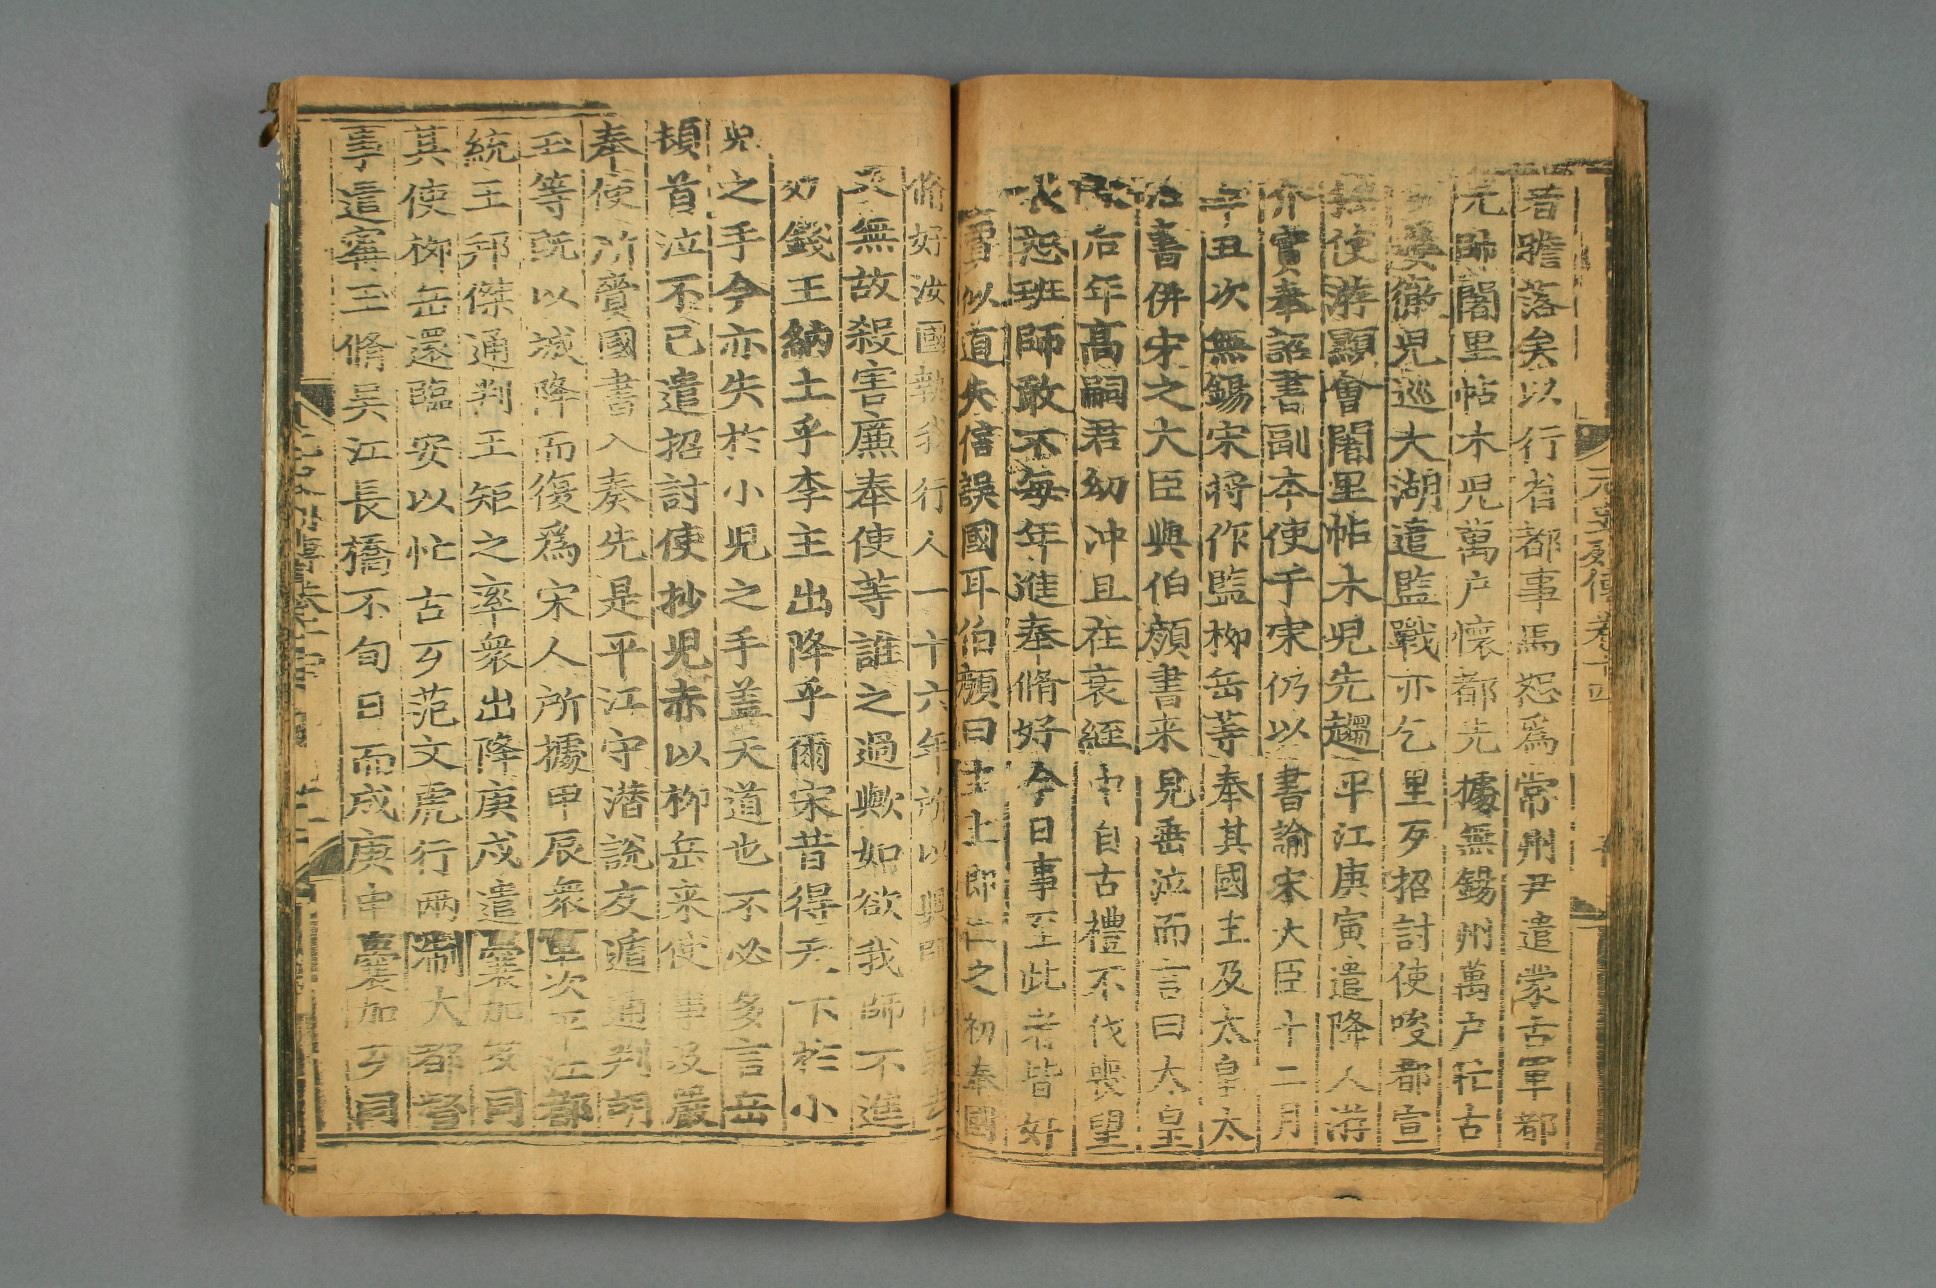 者膽落矣以行省都事馬恕爲常州尹遣蒙古軍都
元帥闍里帖木兒萬戶懷都先據無錫州萬戶忙古
歹晏徹兒巡太湖遣監戰亦乞里歹招討使唆都宣
撫使游顯會闍里帖木兒先趨平江庚寅遣降人游
介實奉詔書副本使于宋仍以書諭宋大臣十二月
辛丑次無錫宋將作監柳岳等奉其國主及太皇太
后書併宋之大臣與伯顔書来見垂泣而言曰太皇
后年高嗣君幼冲且在衰絰中自古禮不伐喪望
哀恕班師敢不每年進奉脩好今日事至此者皆奸
賈似道失信誤國耳伯顔曰主上即位之初奉國
脩好汝國執我行人一十六年所以興師問罪去
無故殺害廉奉使等誰之過歟如欲我師不進
效錢王納土乎李主出降乎爾宋昔得天下於小
兒之手今亦失於小兒之手盖天道也不必多言岳
頓首泣不已遣招討使抄兒赤以柳岳来使事及嚴
奉使所賫國書入奏先是平江守潜說友遁通判胡
玉等旣以城降而復爲宋人所據甲辰衆軍次平江都
統王邦傑通判王矩之率衆出降庚戌遣囊加歹同
其使柳岳還臨安以忙古歹范文虎行兩浙大都督
事遣寗玉脩吳江長橋不旬日而成庚申囊加歹同